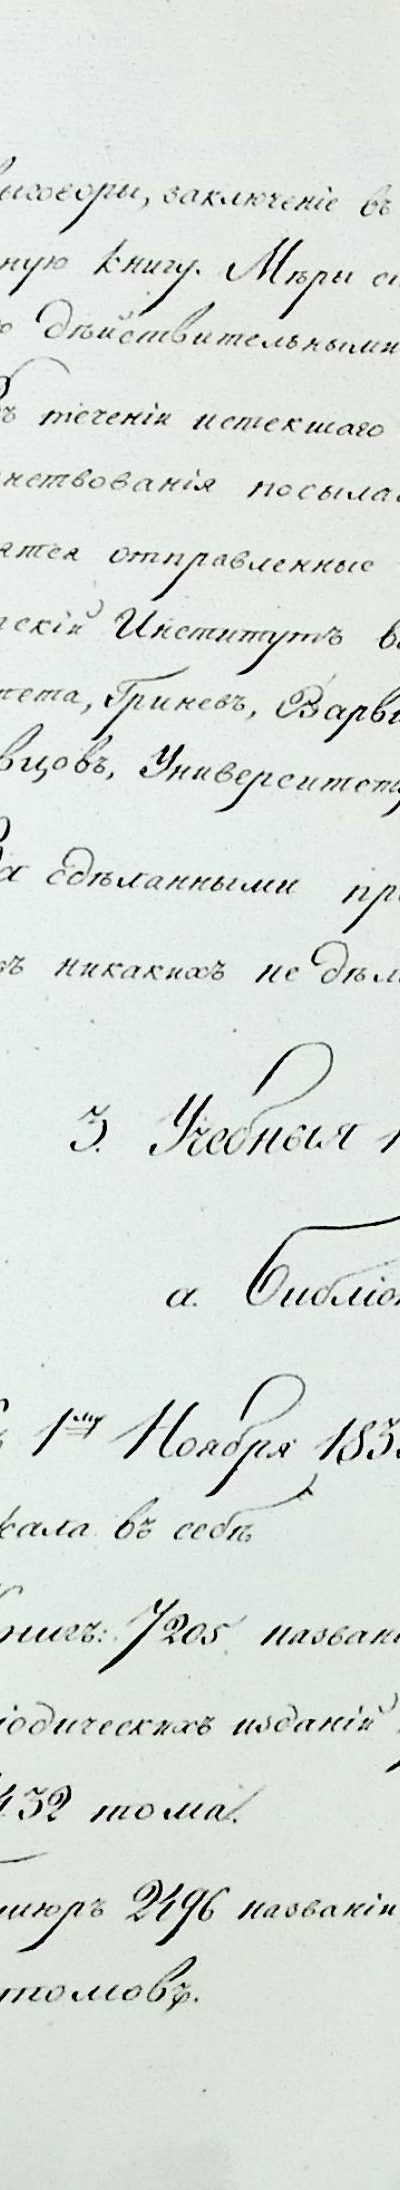 выговоры, заключеніе въ
ную книгу. Мѣры
дѣйствительными
Въ теченіи истекшаго
нствованія посыла
ятся отправленные
скій Институтъ
тета, Гриневъ, Варви
вцовъ, Университет
За сдѣланными пр
хъ никакихъ не дѣла
3. Учебныя
а. Библіо
1му Ноября 183
жала въ себѣ
Книгъ: 7205 названі
іодическихъ изданій
432 тома.
шюръ 2496 названій
томовъ.